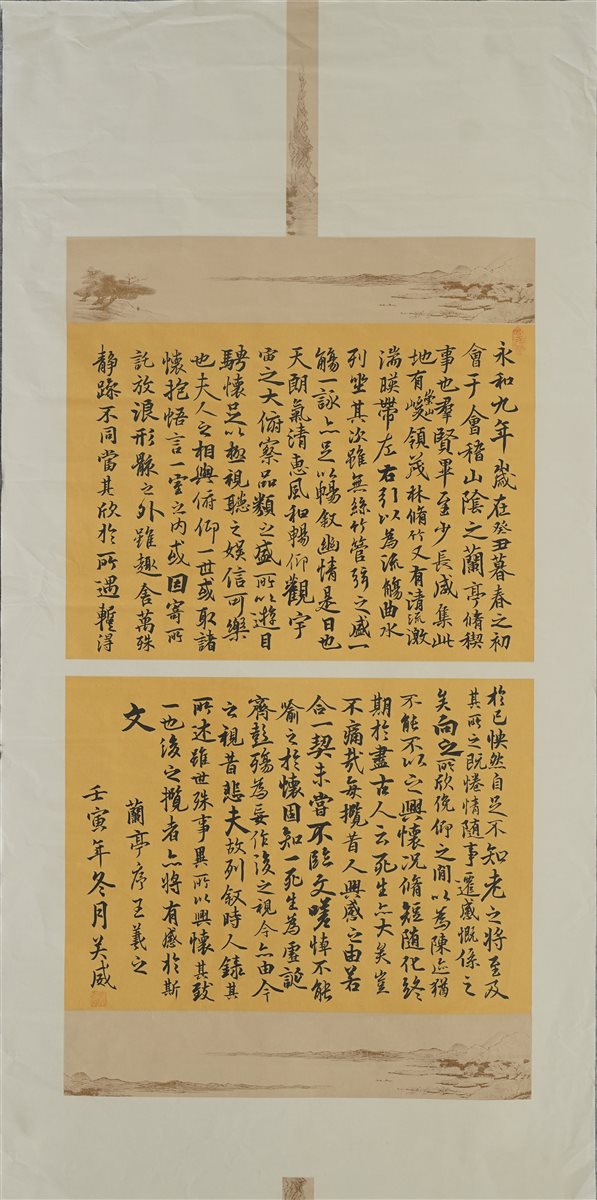 永和九年歲在癸丑暮春之初
會于會稽山陰之蘭亭脩稧
事也羣賢畢至少長咸集此
地有崇山峻領茂林脩竹又有清流激
湍暎帶左右引以為流觴曲水
列坐其次雖無絲竹管弦之盛一
觴一詠亦足以暢叙幽情是日也
天朗氣清惠風和暢仰觀宇
宙之大俯察品類之盛所以遊目
騁懷足以極視聽之娛信可樂
也夫人之相與俯仰一世或取諸
懷抱悟言一室之內或因寄所
託放浪形骸之外雖趣舍萬殊
靜躁不同當其欣於所遇暫得
於己怏然自足不知老之將至及
其所之既惓情隨事遷感慨係之
矣向之所欣俛仰之閒以為陳迹猶
不能不以之興懷況脩短隨化終
期於盡古人云死生亦大矣豈
不痛哉每攬昔人興感之由若
合一契未嘗不臨文嗟悼不能
喻之於懷固知一死生為虛誕
齊彭殤為妄作後之視今亦由今
之視昔悲夫故列叙時人錄其
所述雖世殊事異所以興懷其致
一也後之攬者亦將有感於斯
文
蘭亭序王羲之
壬寅年冬月